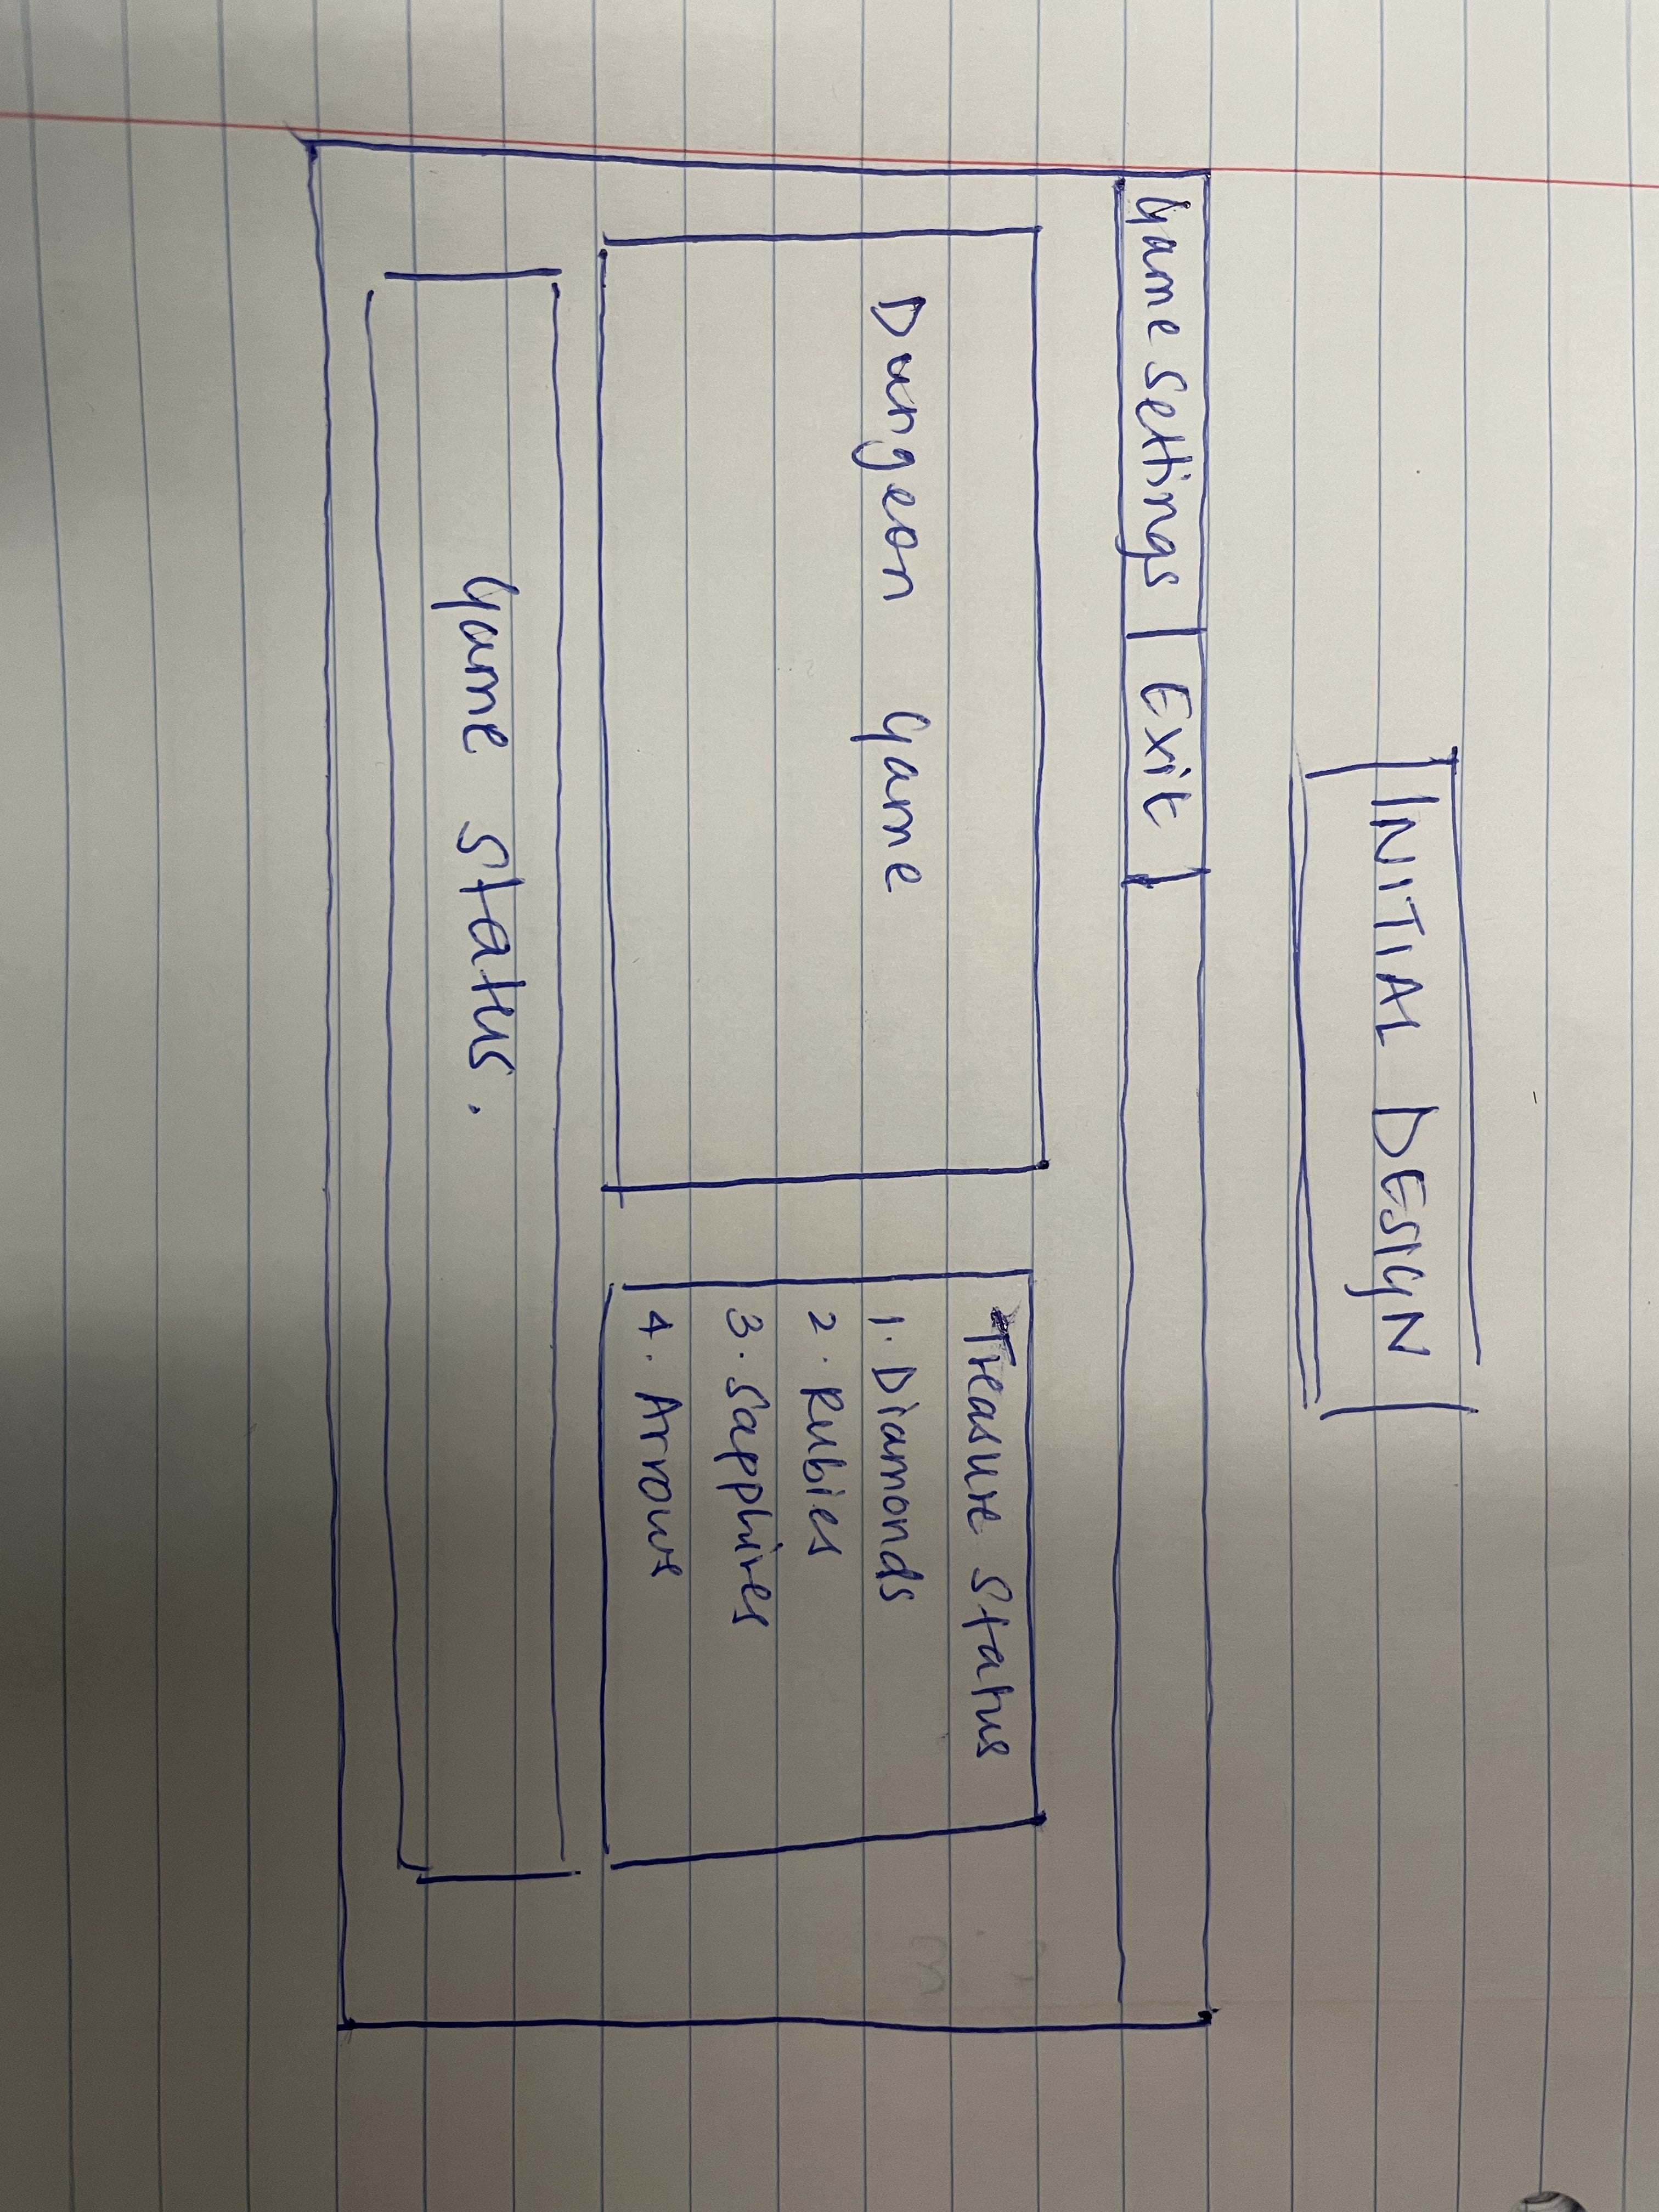 INITIAL DESIGN
Game settings Exit
Dungeon Game
Treasure Status
1. Diamonds
2. Rubies
3. Sapphires
4. Arrows
Game Status.